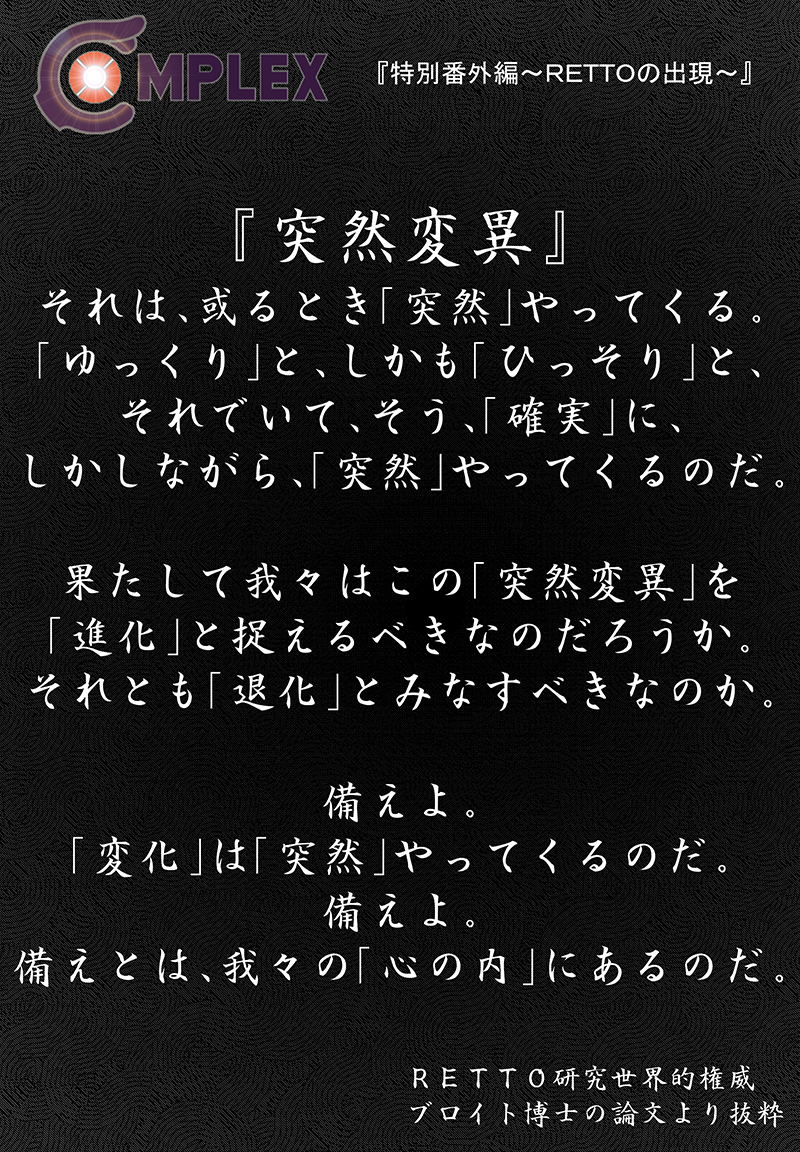 COMPLEX
『特別番外編～RETTOの出現～』
『突然変異』
それは、或るとき「突然」やってくる。
「ゆっくり」と、しかも「ひっそり」と、
それでいて、そう、「確実」に、
しかしながら、「突然」やってくるのだ。
果たして我々はこの「突然変異」を
「進化」と捉えるべきなのだろうか。
それとも「退化」とみなすべきなのか。
備えよ。
「変化」は「突然」やってくるのだ。
備えよ。
備えとは、我々の「心の内」にあるのだ。
ＲＥＴＴＯ研究世界的権威
ブロイト博士の論文より抜粋